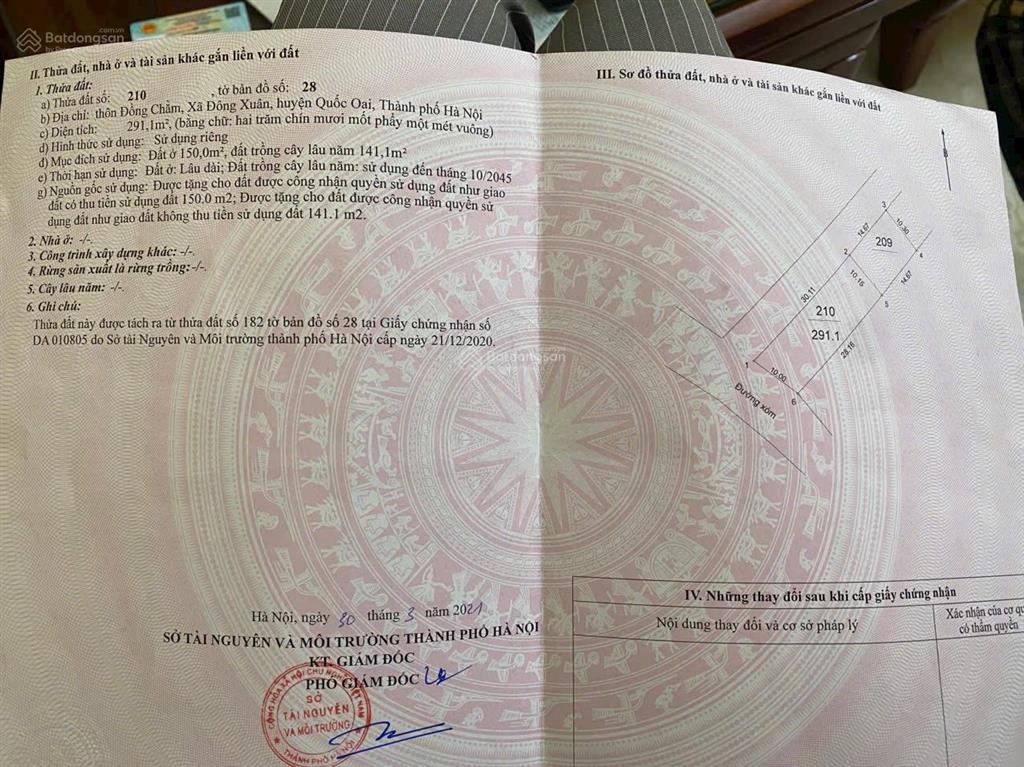 Batdongsan
II. Thửa đất, nhà ở và tài sản khác gắn liền với đất
1. Thửa đất:
a) Thửa đất số: 210 , tờ bản đồ số: 28
b) Địa chỉ: thôn Đồng Chằm, Xã Đông Xuân, huyện Quốc Oai, Thành phố Hà Nội
c) Diện tích: 291,1m², (bằng chữ: hai trăm chín mươi mốt phẩy một mét vuông)
d) Hình thức sử dụng: Sử dụng riêng
đ) Mục đích sử dụng: Đất ở 150,0m², đất trồng cây lâu năm 141,1m²
e) Thời hạn sử dụng: Đất ở: Lâu dài; Đất trồng cây lâu năm: sử dụng đến tháng 10/2045
g) Nguồn gốc sử dụng: Được tặng cho đất được công nhận quyền sử dụng đất như giao
đất có thu tiền sử dụng đất 150.0 m2; Được tặng cho đất được công nhận quyền sử
dụng đất như giao đất không thu tiền sử dụng đất 141.1 m2.
2. Nhà ở: -/-.
3. Công trình xây dựng khác: -/-.
4. Rừng sản xuất là rừng trồng: -/-.
5. Cây lâu năm: -/-.
6. Ghi chú:
Thửa đất này được tách ra từ thửa đất số 182 tờ bản đồ số 28 tại Giấy chứng nhận số
DA 010805 do Sở tài Nguyên và Môi trường thành phố Hà Nội cấp ngày 21/12/2020.
Hà Nội, ngày 30 tháng 3 năm 2021
SỞ TÀI NGUYÊN VÀ MÔI TRƯỜNG THÀNH PHỐ HÀ NỘI
KT. GIÁM ĐỐC
PHÓ GIÁM ĐỐC
CỘNG HÒA XÃ HỘI CHỦ NGHĨA VIỆT NAM
SỞ
TÀI NGUYÊN
VÀ MÔI TRƯỜNG
THÀNH PHỐ HÀ NỘI
III. Sơ đồ thửa đất, nhà ở và tài sản khác gắn liền với đất
B
3
14.67
10.30
209
4
2
10.15
14.67
5
30.11
210
291.1
28.16
1
10.00
6
Đường xóm
Batdongsan
IV. Những thay đổi sau khi cấp giấy chứng nhận
Nội dung thay đổi và cơ sở pháp lý
Xác nhận của cơ qu
có thẩm quyền